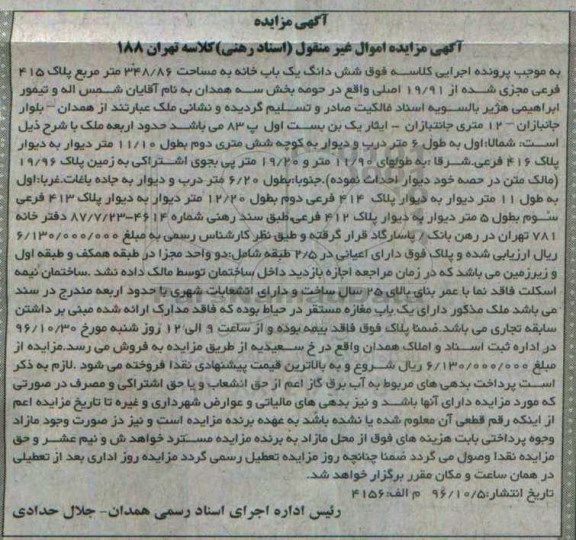 آگهی مزایده
آگهی مزایده اموال غیر منقول (اسناد رهنی) کلاسه تهران ۱۸۸
به موجب پرونده اجرایی کلاسه فوق شش دانگ یک باب خانه به مساحت ۳۴۸/۸۶ متر مربع پلاک ۴۱۵
فرعی مجزی شده از ۱۹/۹۱ اصلی واقع در حومه بخش سه همدان به نام آقایان شمس اله و تیمور
ابراهیمی هژیر بالسویه اسناد مالکیت صادر و تسلیم گردیده و نشانی ملک عبارتند از همدان - بلوار
جانبازان - ۱۲ متری جانبازان - ایثار یک بن بست اول پ ۸۳ می باشد حدود اربعه ملک با شرح ذیل
است: شمالا:اول به طول ۶ متر درب و دیوار به کوچه شش متری دوم بطول ۱۱/۱۰ متر دیوار به دیوار
پلاک ۴۱۶ فرعی.شرقا :به طولهای ۱۱/۹۰ متر و ۱۹/۲۰ متر پی بجوی اشتراکی به زمین پلاک ۱۹/۹۶
(مالک متن در حصه خود دیوار احداث نموده).جنوبا:بطول ۶/۲۰ متر درب و دیوار به جاده باغات.غربا:اول
به طول ۱۱ متر دیوار به دیوار پلاک ۴۱۴ فرعی دوم بطول ۱۲/۲۰ متر دیوار به دیوار پلاک ۴۱۳ فرعی
سوم بطول ۵ متر دیوار به دیوار پلاک ۴۱۲ فرعی.طبق سند رهنی شماره ۴۶۱۴-۸۷/۷/۲۳ دفتر خانه
۷۸۱ تهران در رهن بانک پاسارگاد قرار گرفته و طبق نظر کارشناس رسمی به مبلغ ۶/۱۳۰/۰۰۰/۰۰۰
ریال ارزیابی شده و پلاک فوق دارای اعیانی در ۲/۵ طبقه شامل:دو واحد مجزا در طبقه همکف و طبقه اول
و زیرزمین می باشد که در زمان مراجعه اجازه بازدید داخل ساختمان توسط مالک داده نشد .ساختمان نیمه
اسکلت فاقد نما با عمر بنای بالای ۲۵ سال ساخت و دارای انشعابات شهری با حدود اربعه مندرج در سند
می باشد ملک مذکور دارای یک باب مغازه مستقر در حیاط بوده که فاقد مدارک ارائه شده مبنی بر داشتن
سابقه تجاری می باشد.ضمنا پلاک فوق فاقد بیمه بوده و از ساعت ۹ الی ۱۲ روز شنبه مورخ ۹۶/۱۰/۳۰
در اداره ثبت اسناد و املاک همدان واقع در خ سعیدیه از طریق مزایده به فروش می رسد.مزایده از
مبلغ ۶/۱۳۰/۰۰۰/۰۰۰ ریال شروع و به بالاترین قیمت پیشنهادی نقدا فروخته می شود .لازم به ذکر
است پرداخت بدهی های مربوط به آب برق گاز اعم از حق انشعاب و یا حق اشتراکی و مصرف در صورتی
که مورد مزایده دارای آنها باشد و نیز بدهی های مالیاتی و عوارض شهرداری و غیره تا تاریخ مزایده اعم
از اینکه رقم قطعی آن معلوم شده یا نشده باشد به عهده برنده مزایده است و نیز در صورت وجود مازاد
وجوه پرداختی بابت هزینه های فوق از محل مازاد به برنده مزایده مسترد خواهد ش و نیم عشر و حق
مزایده نقدا وصول می گردد ضمنا چنانچه روز مزایده تعطیل رسمی گردد مزایده روز اداری بعد از تعطیلی
در همان ساعت و مکان مقرر برگزار خواهد شد.
تاریخ انتشار:۹۶/۱۰/۵ م الف:۴۱۵۶
رئیس اداره اجرای اسناد رسمی همدان- جلال حدادی